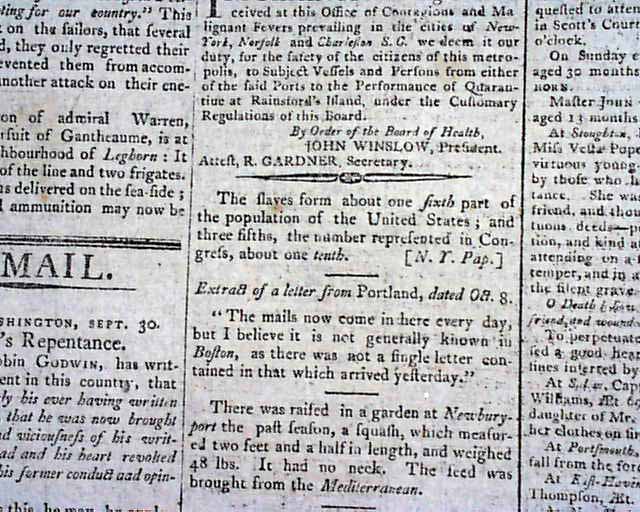 ting for our country." This
t on the sailors, that several
d, they only regretted their
evented them from accom-
another attack on their ene-
on of admiral Warren,
rsuit of Gantheaume, is at
hbourhood of Leghorn: It
of the line and two frigates.
ns delivered on the sea-side;
l ammunition may now be
MAIL.
SHINGTON, SEPT. 30.
's Repentance.
obin GODWIN, has writ-
ent in this country, that
ly his ever having written
that he was now brought
nd viciouſneſs of his writ-
ad and his heart revolted
his former conduct aad opin-
ceived at this Office of Contagious and Ma
lignant Fevers prevailing in the cities of New-
York, Norfolk and Charleſton S. C. we deem it our
duty, for the ſafety of the citizens of this metro-
polis, to Subject Veſſels and Perſons from either
of the ſaid Ports to the Performance of Quaran-
tine at Rainsford's Iſland, under the Cuſtomary
Regulations of this Board.
By Order of the Board of Health,
JOHN WINSLOW, Preſident.
Atteſt, R. GARDNER, Secretary.
The ſlaves form about one ſixth part of
the population of the United States; and
three fifths, the number repreſented in Con-
greſs, about one tenth. [N. Y. Pap.]
Extract of a letter from Portland, dated Oct. 8.
"The mails now come in here every day,
but I believe it is not generally known in
Boſton, as there was not a ſingle letter con-
tained in that which arrived yeſterday."
There was raiſed in a garden at Newbury-
port the paſt ſeaſon, a ſquaſh, which meaſur-
ed two feet and a half in length, and weighed
48 lbs. It had no neck. The ſeed was
brought from the Mediterranean.
queſted to atten
in Scott's Court
o'clock.
On Sunday e
aged 30 months
HORN.
Maſter JOHN
aged 13 months
At Stoughton,
Miſs Veſta Pope
virtuous young
by thoſe who h
tance. She was
friend, and tho
tuous deeds—p
tion, and kind a
attending on a
temper, and in a
the ſilent grave.
O Death
friend, and wound
To perpetuate
ſed a good hea
lines inſerted by
At Capt
Williams, Æt. 6
daughter of Mr.
her clothes on fi
At Portſmouth,
fall from the fore
At Eaſt-Haven
Thompſon, Æt.